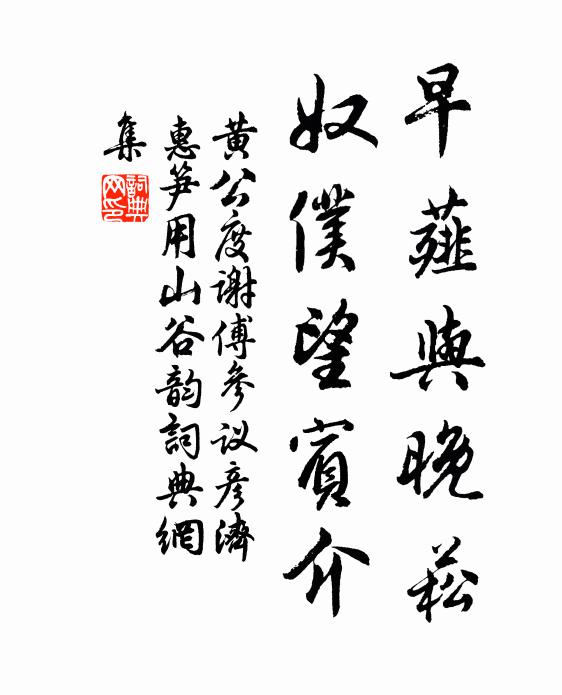 早薤與晚菘
奴僕望賓介
黄公度谢傅參议彦濟
惠笋用山谷韵詞典網
集
詞典
网印